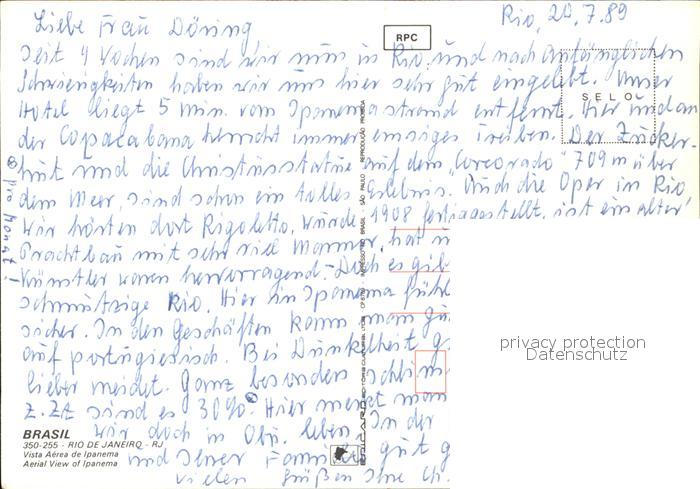 Rio, 20.7.89
Liebe Frau Döring
RPC
seit 4 Wochen sind wir nun in Rio und nach anfänglichen
Schwierigkeiten haben wir uns hier sehr gut eingelebt. Unser
SELO
Hotel liegt 5 min. vom Ipanemastrand entfernt. Hier und an
der Copacabana herrscht immer emsiges Treiben. Der Zucker-
hut und die Christusstatue auf dem "Corcovado" 709 m über
dem Meer, sind schon ein tolles Erlebnis. Auch die Oper in Rio
wir hörten dort Rigoletto, wurde 1908 fertiggestellt, ist ein alter
Prachtbau mit sehr viel Marmor, hat
Künstler waren hervorragend. - Doch es gib
schmutzige Rio. Hier in Ipanema fühl
sicher. In den Geschäften kann man
auf portugiesisch. Bei Dunkelheit
lieber meidet. Ganz besonders schlim
z.Zt sind es 30%. Hier merkt man
wir doch in leben. In der
und Ihrer Familie gut g
vielen Grüßen Ihre
pro Monat!
privacy protection
Datenschutz
BRASIL
350-255 - RIO DE JANEIRO - RJ
Vista Aérea de Ipanema
Aerial View of Ipanema